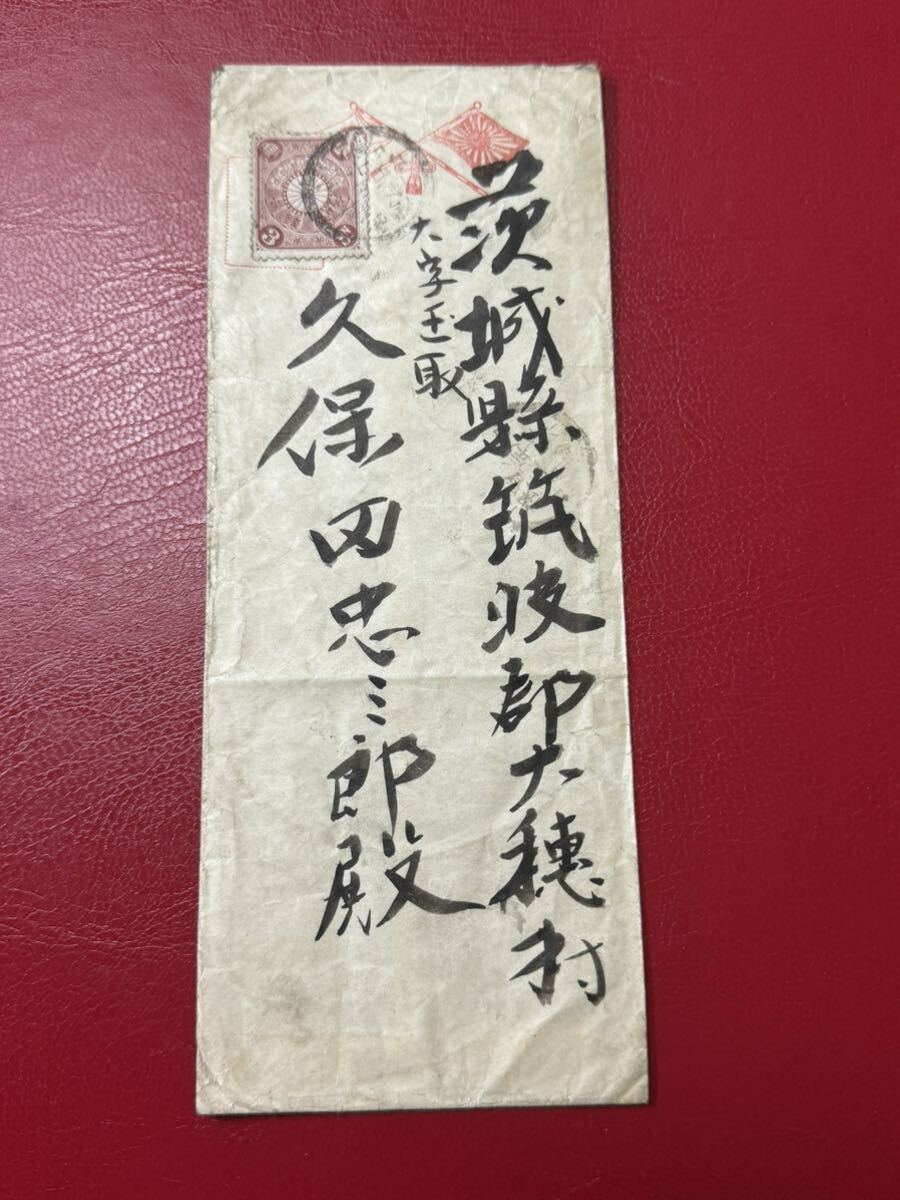 茨城縣筑波郡大穂村
大字玉取
久保田忠三郎殿